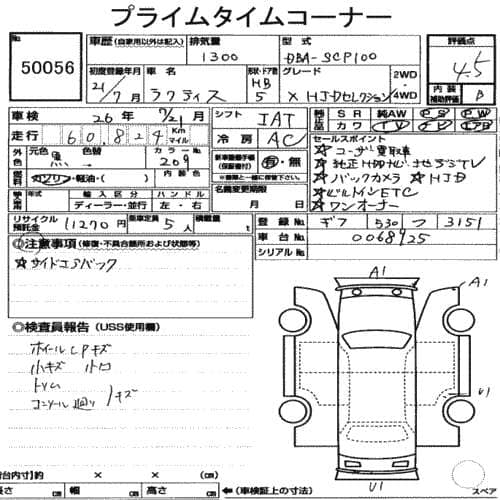 プライムタイムコーナー
出品番号No.
50056
車歴 (自家用以外は記入) 排気量 1300 型式 DBA-SCP100
評価点 4.5
初度登録年月 21/7月 車名 ラクティス 形状・ドア数 HB 5 グレード X HIDセレクション 2WD・4WD
内装補助評価 B
車検 26年 7/21月 シフト IAT 装備品 SR 純AW PS PW
カワ TV
走行 60,824 Km マイル 冷房 AC
セールスポイント
外色 元色 黒 色替 カラーNo. 209
☆コーナー買取車
☆純正HDDナビ地デジTV
燃料 ガソリン・軽油・( ) 内装色
新車整備手帳(保証書付) 有・無
※書類と一緒に保管して下さい
☆バックカメラ ☆HID
年式 輸入区分 ハンドル
ディーラー・並行 左・右
名義変更期限 月 日
☆ビルトインETC
☆ワンオーナー
リサイクル預託金 11270円 乗車定員 5人 積載量 t
登録No. 530 つ 3151
車台No. 0068925
シリアルNo.
◎注意事項 (修復・不具合箇所および状態等)
☆サイドエアバック
◎検査員報告 (USS使用欄)
ホイールCPキズ
小キズ
トリム
コンソール廻り キズ
A1
A1
U1
U1
スペア
荷台内寸)約 × × (cm)
長さ 幅 高さ (cm) ←(車検証上の寸法)